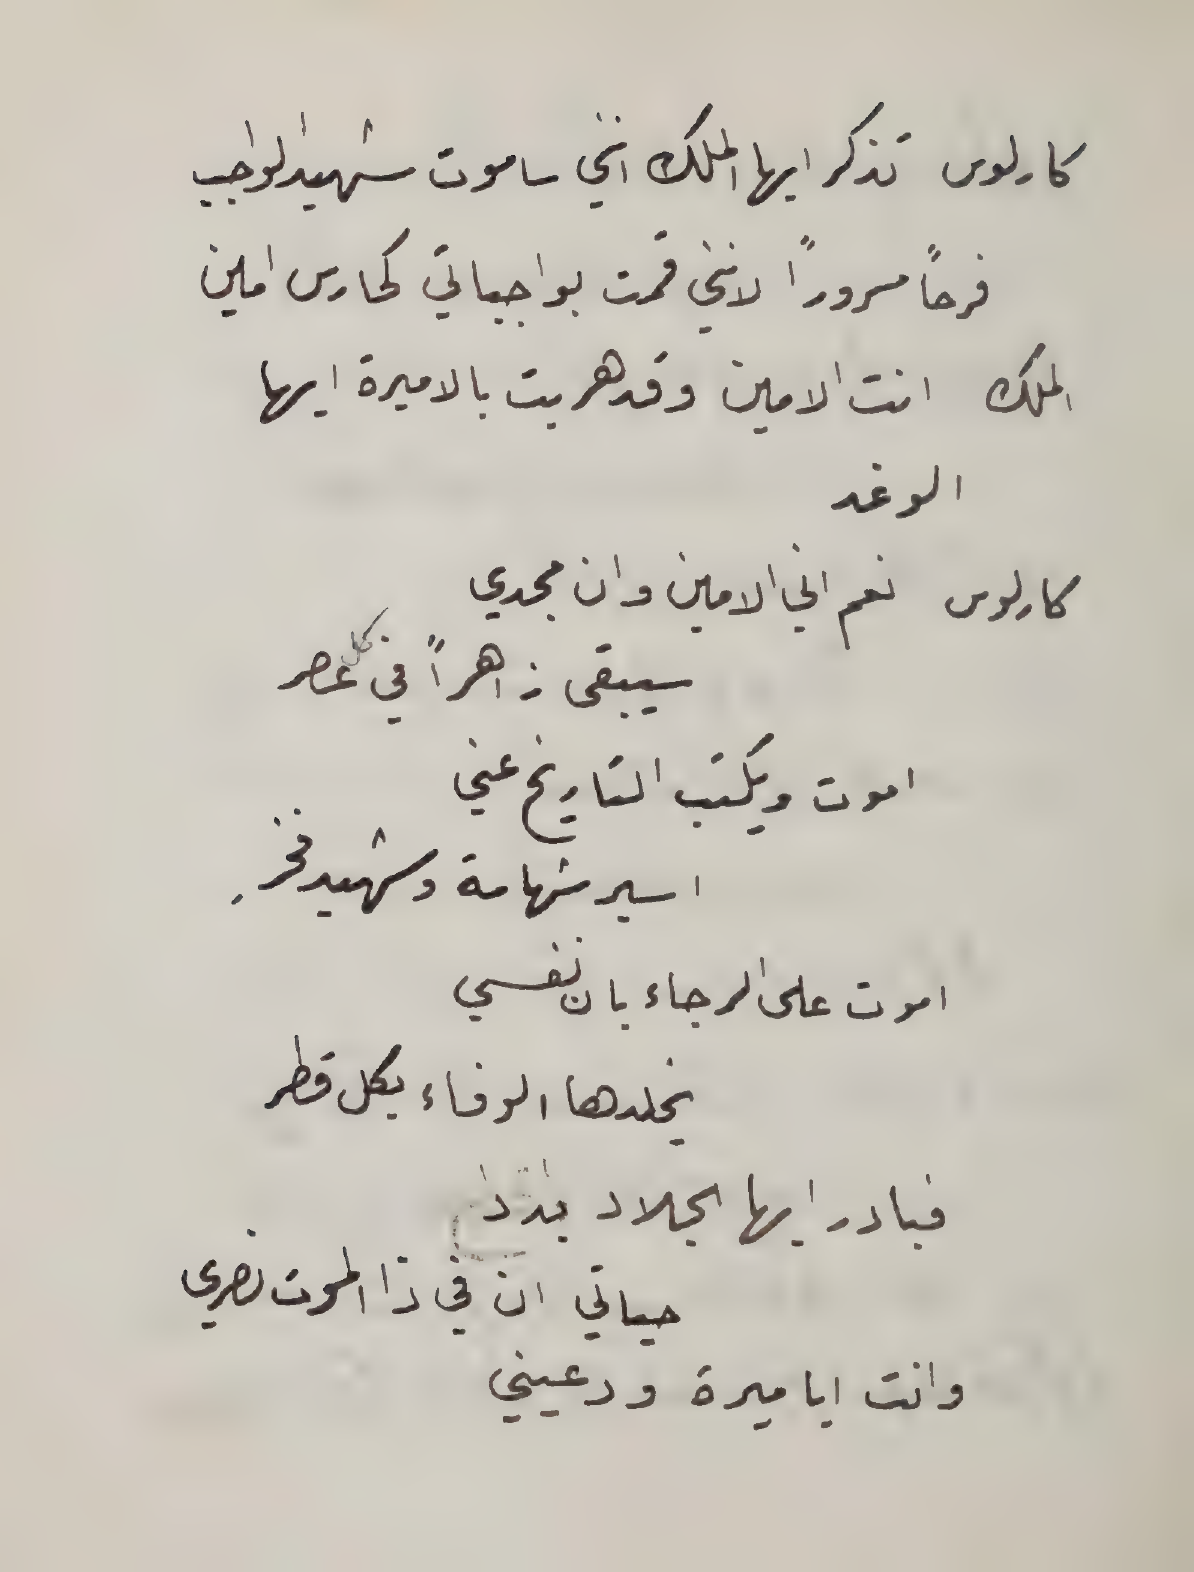 كارلوس تذكر ايها الملك انني ساموت شهيد الواجب
فرحاً مسروراً لانني قمت بواجباتي كحارس امين
الملك انت الامين وقد هربت بالاميرة ايها
الوغد
كارلوس نعم اني الامين وان مجدي
سيبقى زاهراً في كل عصر
اموت ويكتب التاريخ عني
اسير شهامة وشهيد فخر
اموت على الرجاء بان نفسي
يخلدها الوفاء بكل قطر
فبادر ايها الجلاد
حياتي ان في ذا الموت نصري
وانت ايا ميرة ودعيني